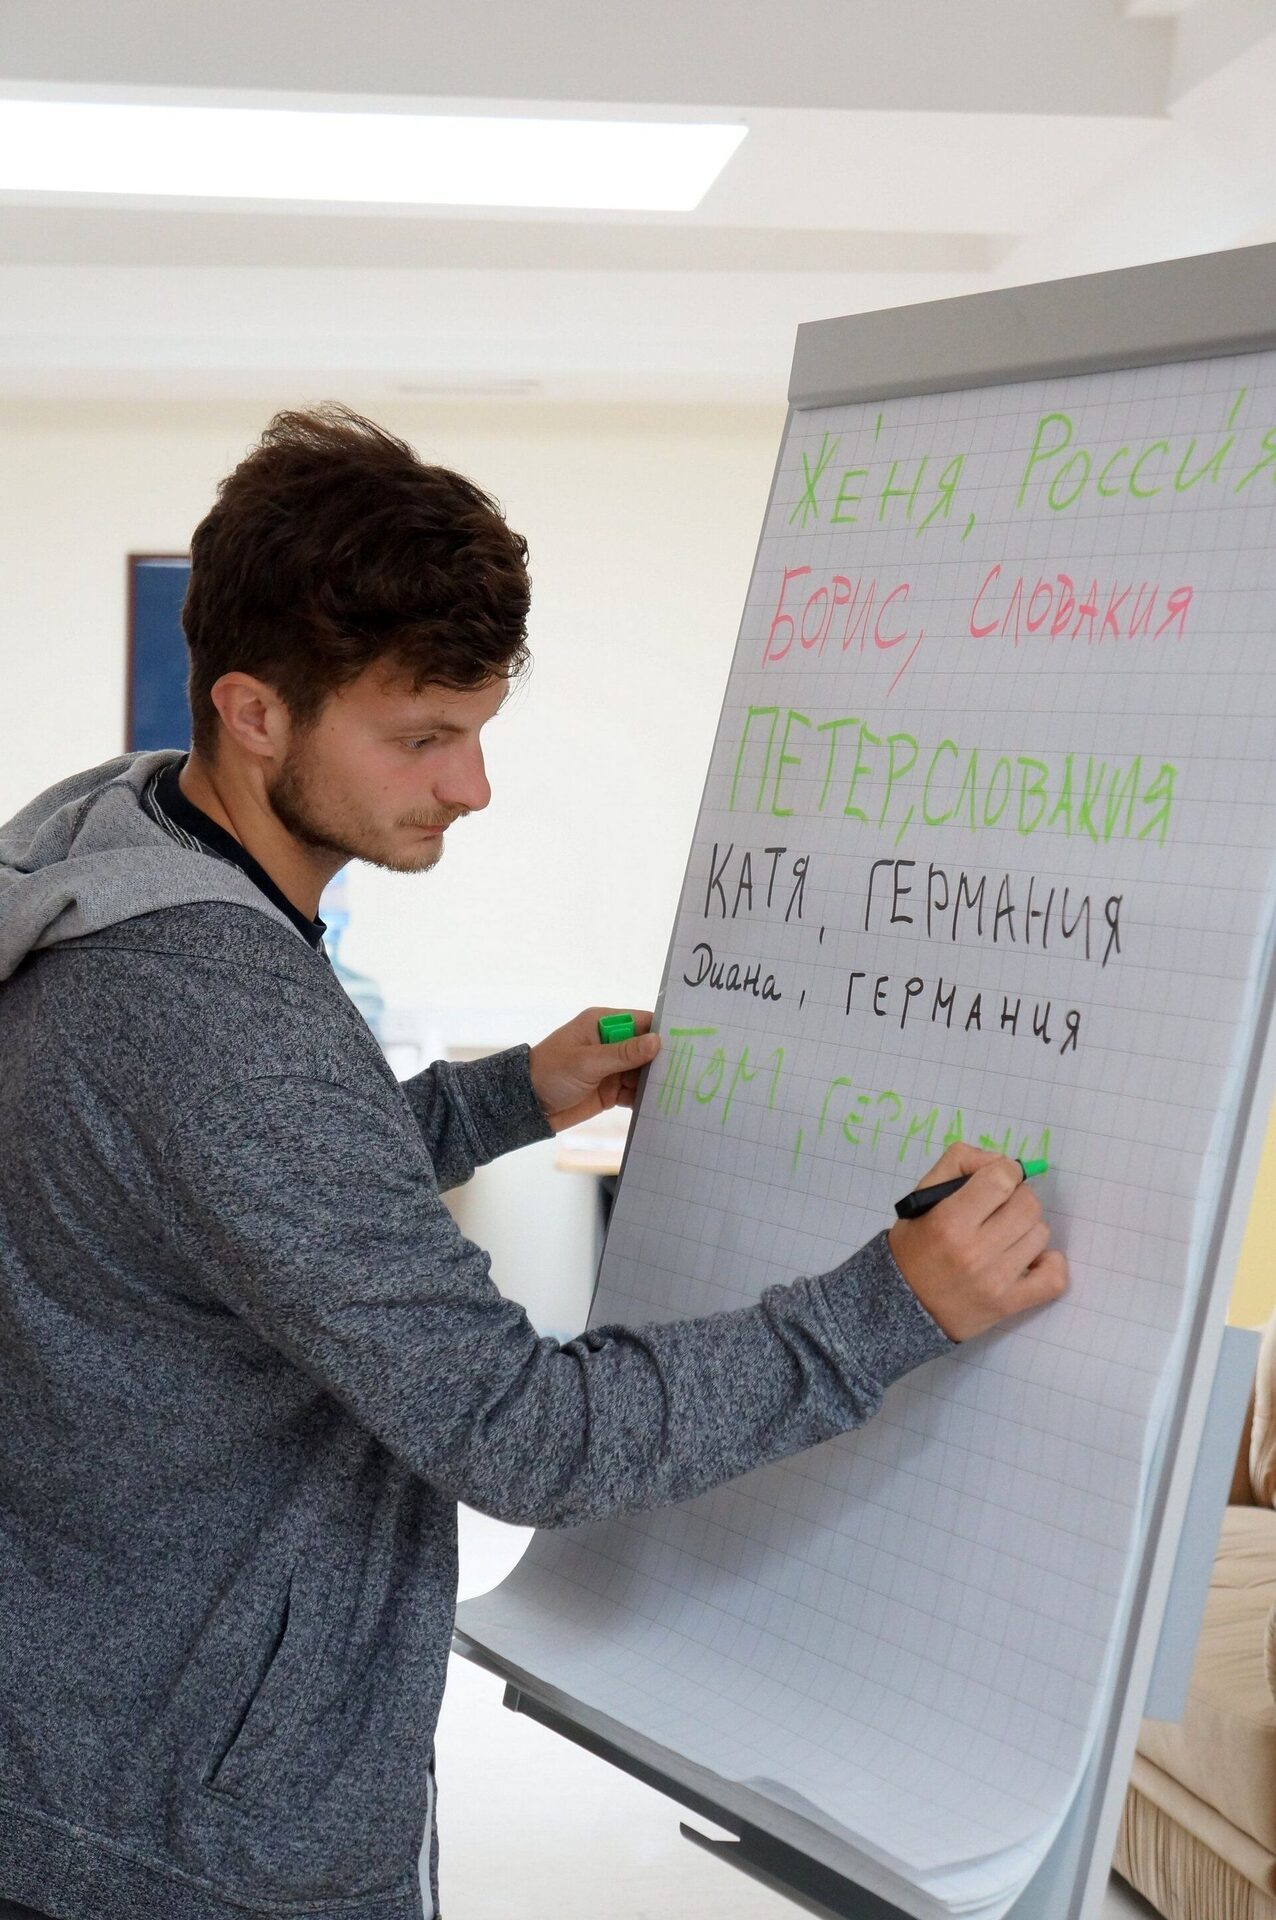 Же́ня, Росси́я
БОРИС, СЛОВАКИЯ
ПЕТЕР, СЛОВАКИЯ
КАТЯ, ГЕРМАНИЯ
Диана, ГЕРМАНИЯ
ТОМ, ГЕРМАНИ